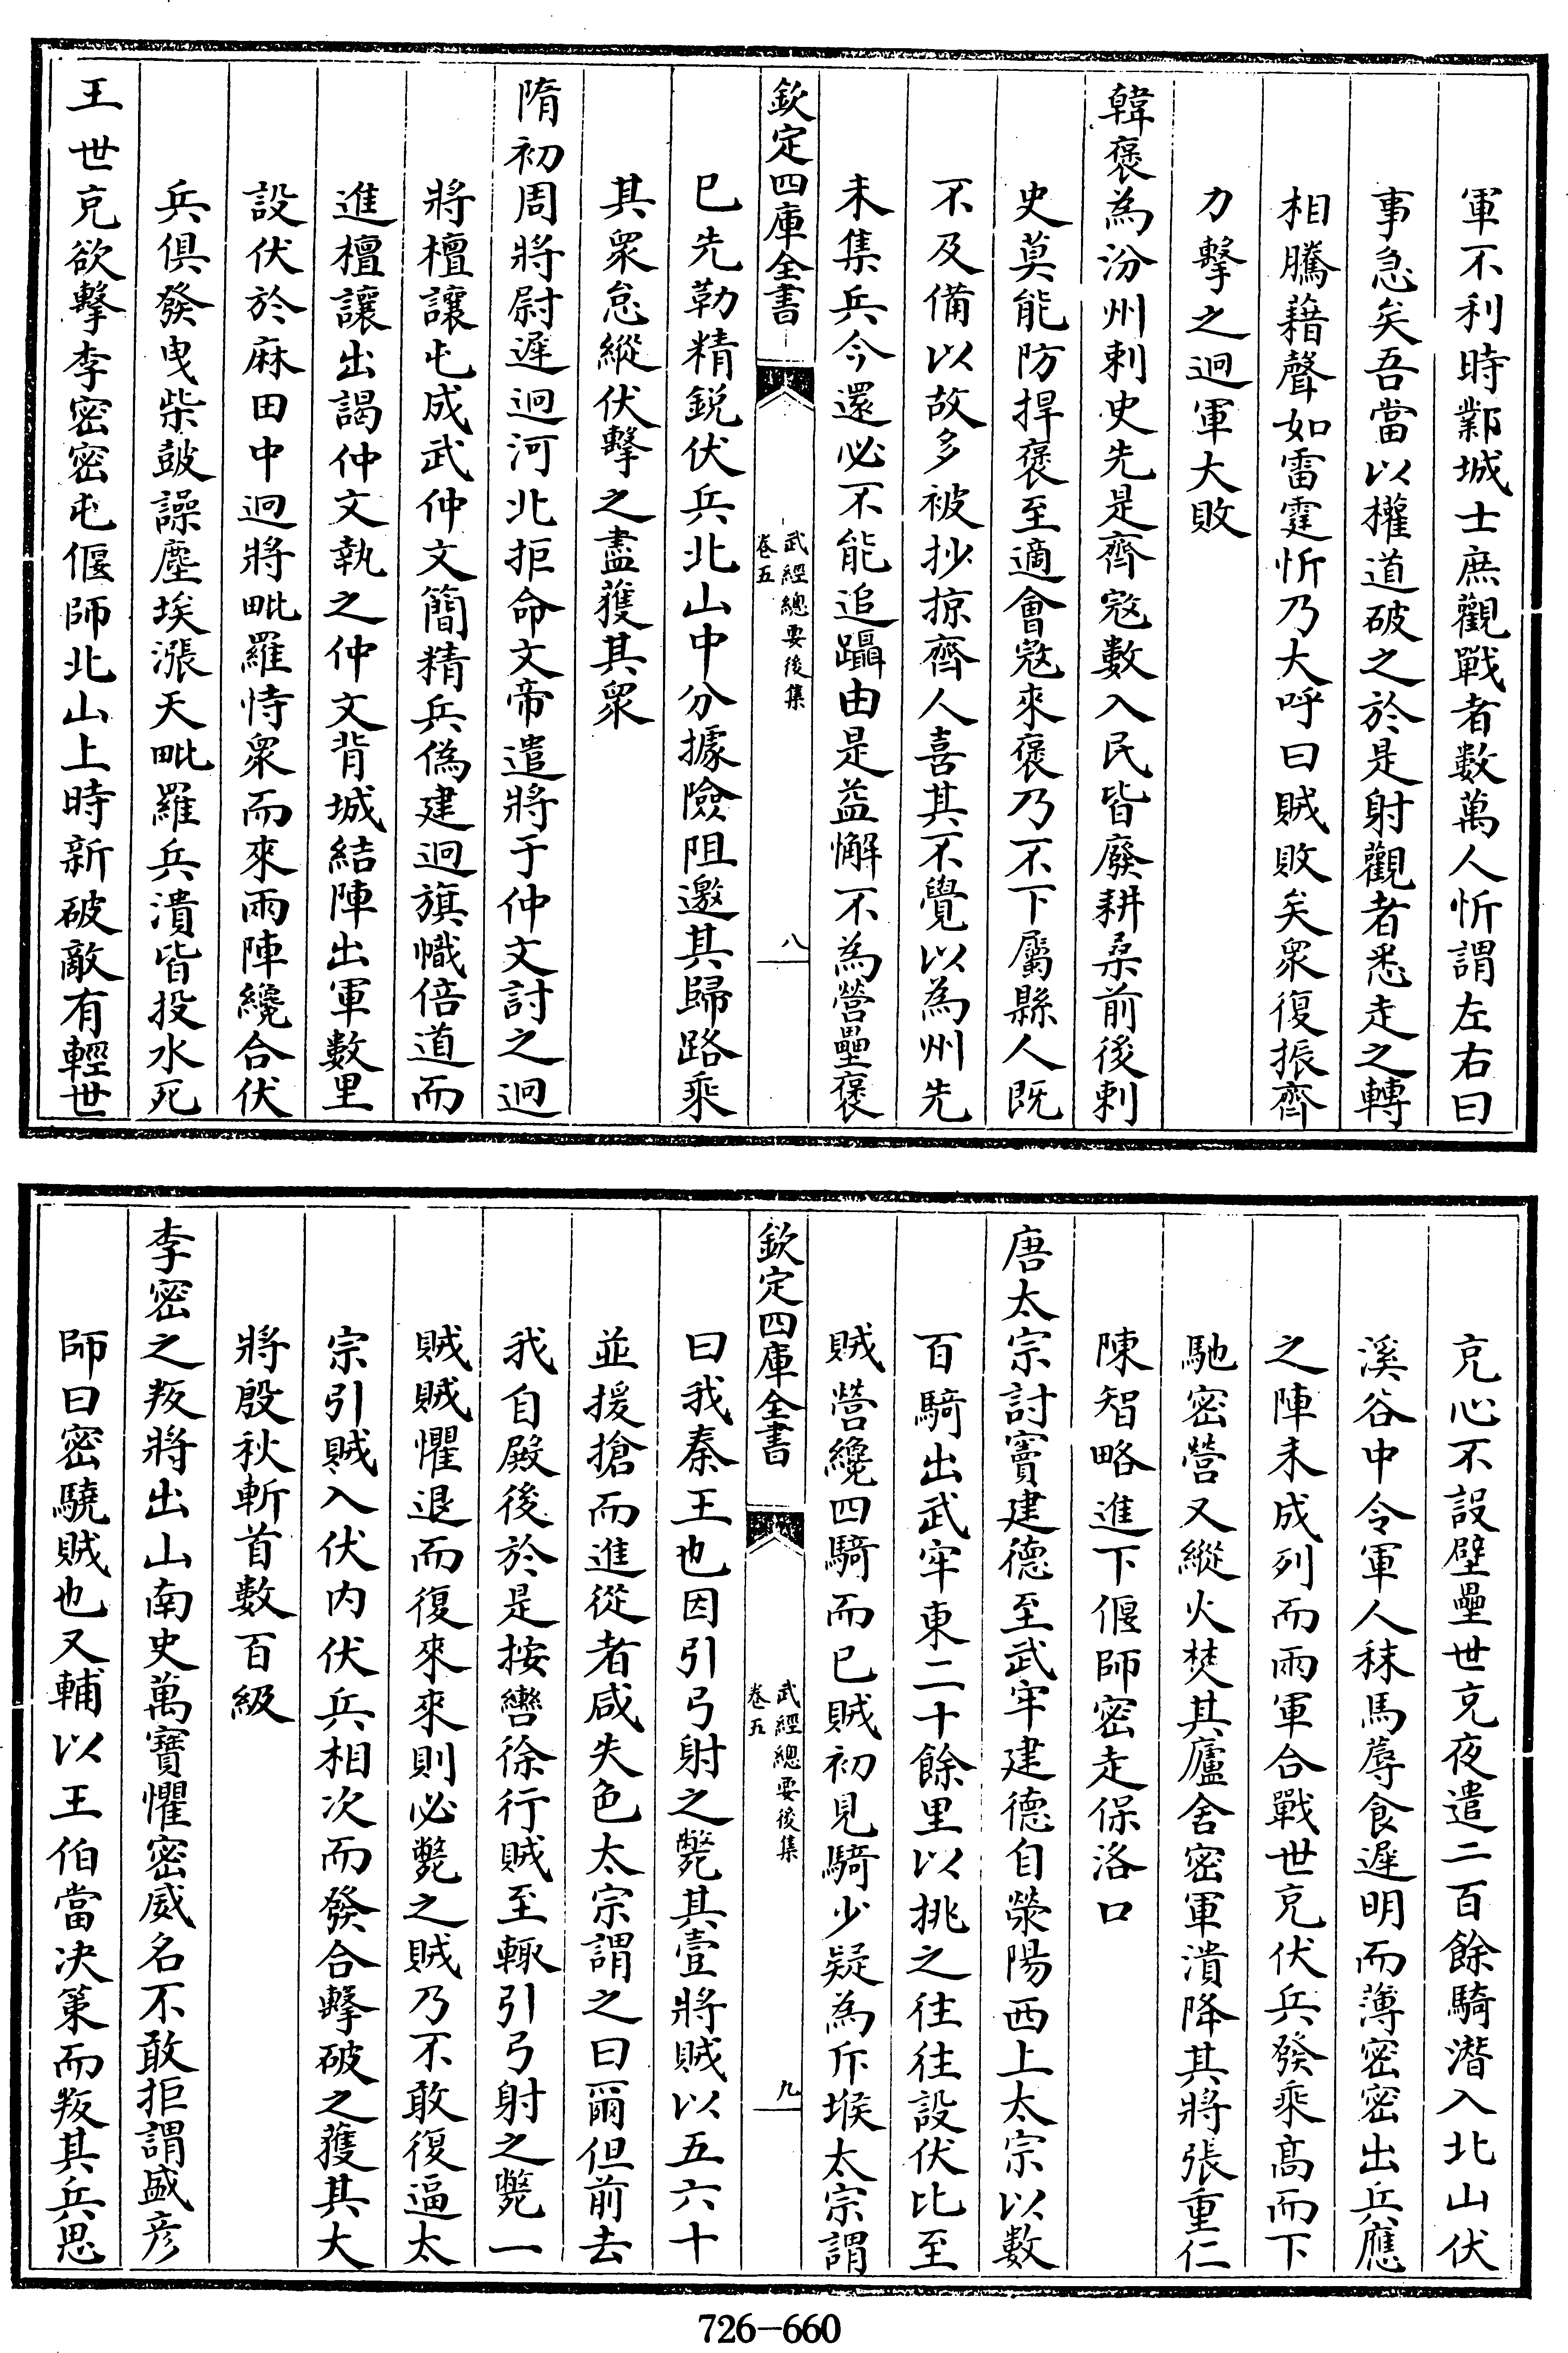 軍不利時鄴城士庶觀戰者數萬人忻謂左右曰
事急矣吾當以權道破之於是射觀者悉走之轉
相騰藉聲如雷霆忻乃大呼曰賊敗矣衆復振齊
力擊之迥軍大敗
韓褒為汾州刺史先是齊寇數入民皆廢耕桑前後刺
史莫能防捍褒至適會寇來褒乃不下屬縣人既
不及備以故多被抄掠齊人喜其不覺以為州先
未集兵今還必不能追躡由是益懈不為營壘褒
欽定四庫全書
武經總要後集
卷五
八
已先勒精銳伏兵北山中分據險阻邀其歸路乘
其衆怠縱伏擊之盡獲其衆
隋初周將尉遲迥河北拒命文帝遣將于仲文討之迥
將檀讓屯成武仲文簡精兵偽建迥旗幟倍道而
進檀讓出謁仲文執之仲文背城結陣出軍數里
設伏於麻田中迥將毗羅恃衆而來兩陣纔合伏
兵俱發曳柴鼓譟塵埃漲天毗羅兵潰皆投水死
王世充欲擊李密密屯偃師北山上時新破敵有輕世
充心不設壁壘世充夜遣二百餘騎潛入北山伏
溪谷中令軍人秣馬蓐食遲明而薄密密出兵應
之陣未成列而兩軍合戰世充伏兵發乘髙而下
馳密營又縱火焚其廬舍密軍潰降其將張童仁
陳智略進下偃師密走保洛口
唐太宗討竇建德至武牢建德自滎陽西上太宗以數
百騎出武牢東二十餘里以挑之往往設伏比至
賊營纔四騎而已賊初見騎少疑為斥堠太宗謂
欽定四庫全書
武經總要後集
卷五
九
曰我秦王也因引弓射之斃其壹將賊以五六十
並援搶而進從者咸失色太宗謂之曰爾但前去
我自殿後於是按轡徐行賊至輙引弓射之斃一
賊賊懼退而復來來則必斃之賊乃不敢復逼太
宗引賊入伏内伏兵相次而發合擊破之獲其大
將殷秋斬首數百級
李密之叛將出山南史萬寶懼密威名不敢拒謂盛彦
師曰密驍賊也又輔以王伯當决策而叛其兵思
726-660